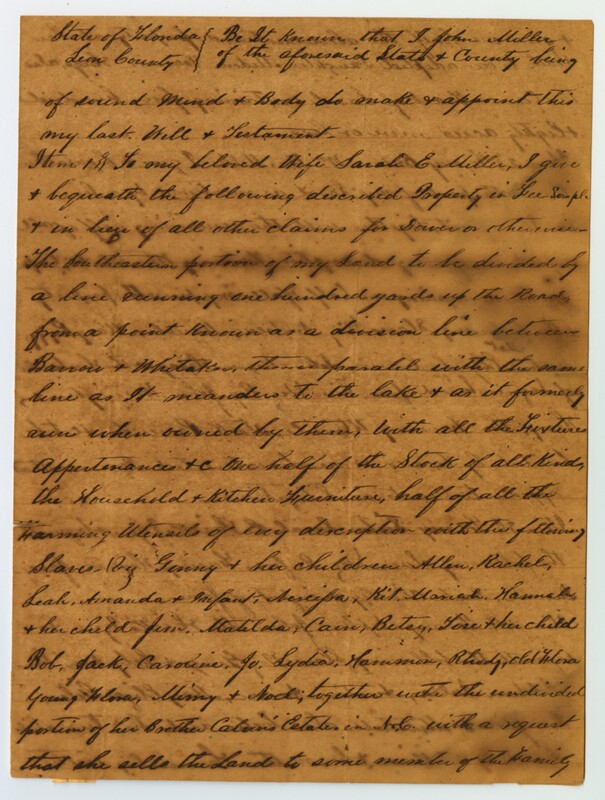 State of Florida { Be It Known that I John Miller
Leon County { of the aforesaid State & County being
of sound Mind & Body do make & appoint this
my last Will & Testament—
Item 1st To my beloved Wife Sarah E Miller, I give
& bequeath the following discribed Property in Fee Simple
& in lieu of all other claims for Dower or otherwise—
The Southeastern portion of my Land to be divided by
a line running one hundred yards up the Road,
from a point known as a division line between
Barrow & Whitaker, thence paralel with the same
line as It meanders to the lake & as it formerly
run when owned by them, with all the Fixtures
Appertenances &c One half of the Stock of all Kinds,
the Household & Kitchen Furniture, half of all the
Farming Utensils of evry discription with the following
Slaves Viz Ginny & her children Allen, Rachel,
Leah, Amanda & Infant, Nercissa, Kit, Mariah, Hannah
& her child Jim, Matilda, Cain, Betsy, & her child
Bob, Jack, Caroline, Jo, Lydia, Hammon, Rhody, Old Flora
Young Flora, Mimy & Noel; together with the undivided
portion of her Brother Calvin's Estate in N.C. with a request
that she sells the Land to some member of the Family